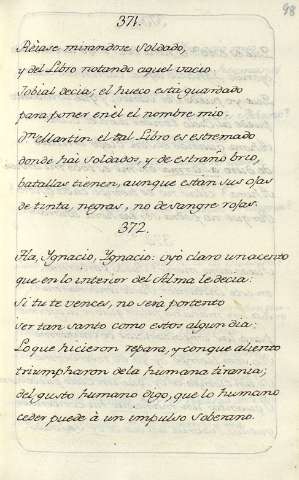 98
371.
Reiase mirandose soldado,
y del Libro notando aquel vacio
Jobial decia; el hueco está guardado
para poner en èl el nombre mio.
Dn. Martin el tal Libro es estremado
donde hai soldados, y de estraño brio,
batallas tienen, aunque están sus ojas
de tinta, negras, no de sangre rojas.
372.
Ha, Ygnacio, Ygnacio: oyó claro un acento
que en lo interior del Alma le decia:
Si tu te vences, no será portento
ser tan santo como estos algun dia:
Lo que hicieron repara, y con que aliento
triumpharon de la humana tirania;
del gusto humano digo, que lo humano
ceder puede à un impulso soberano.